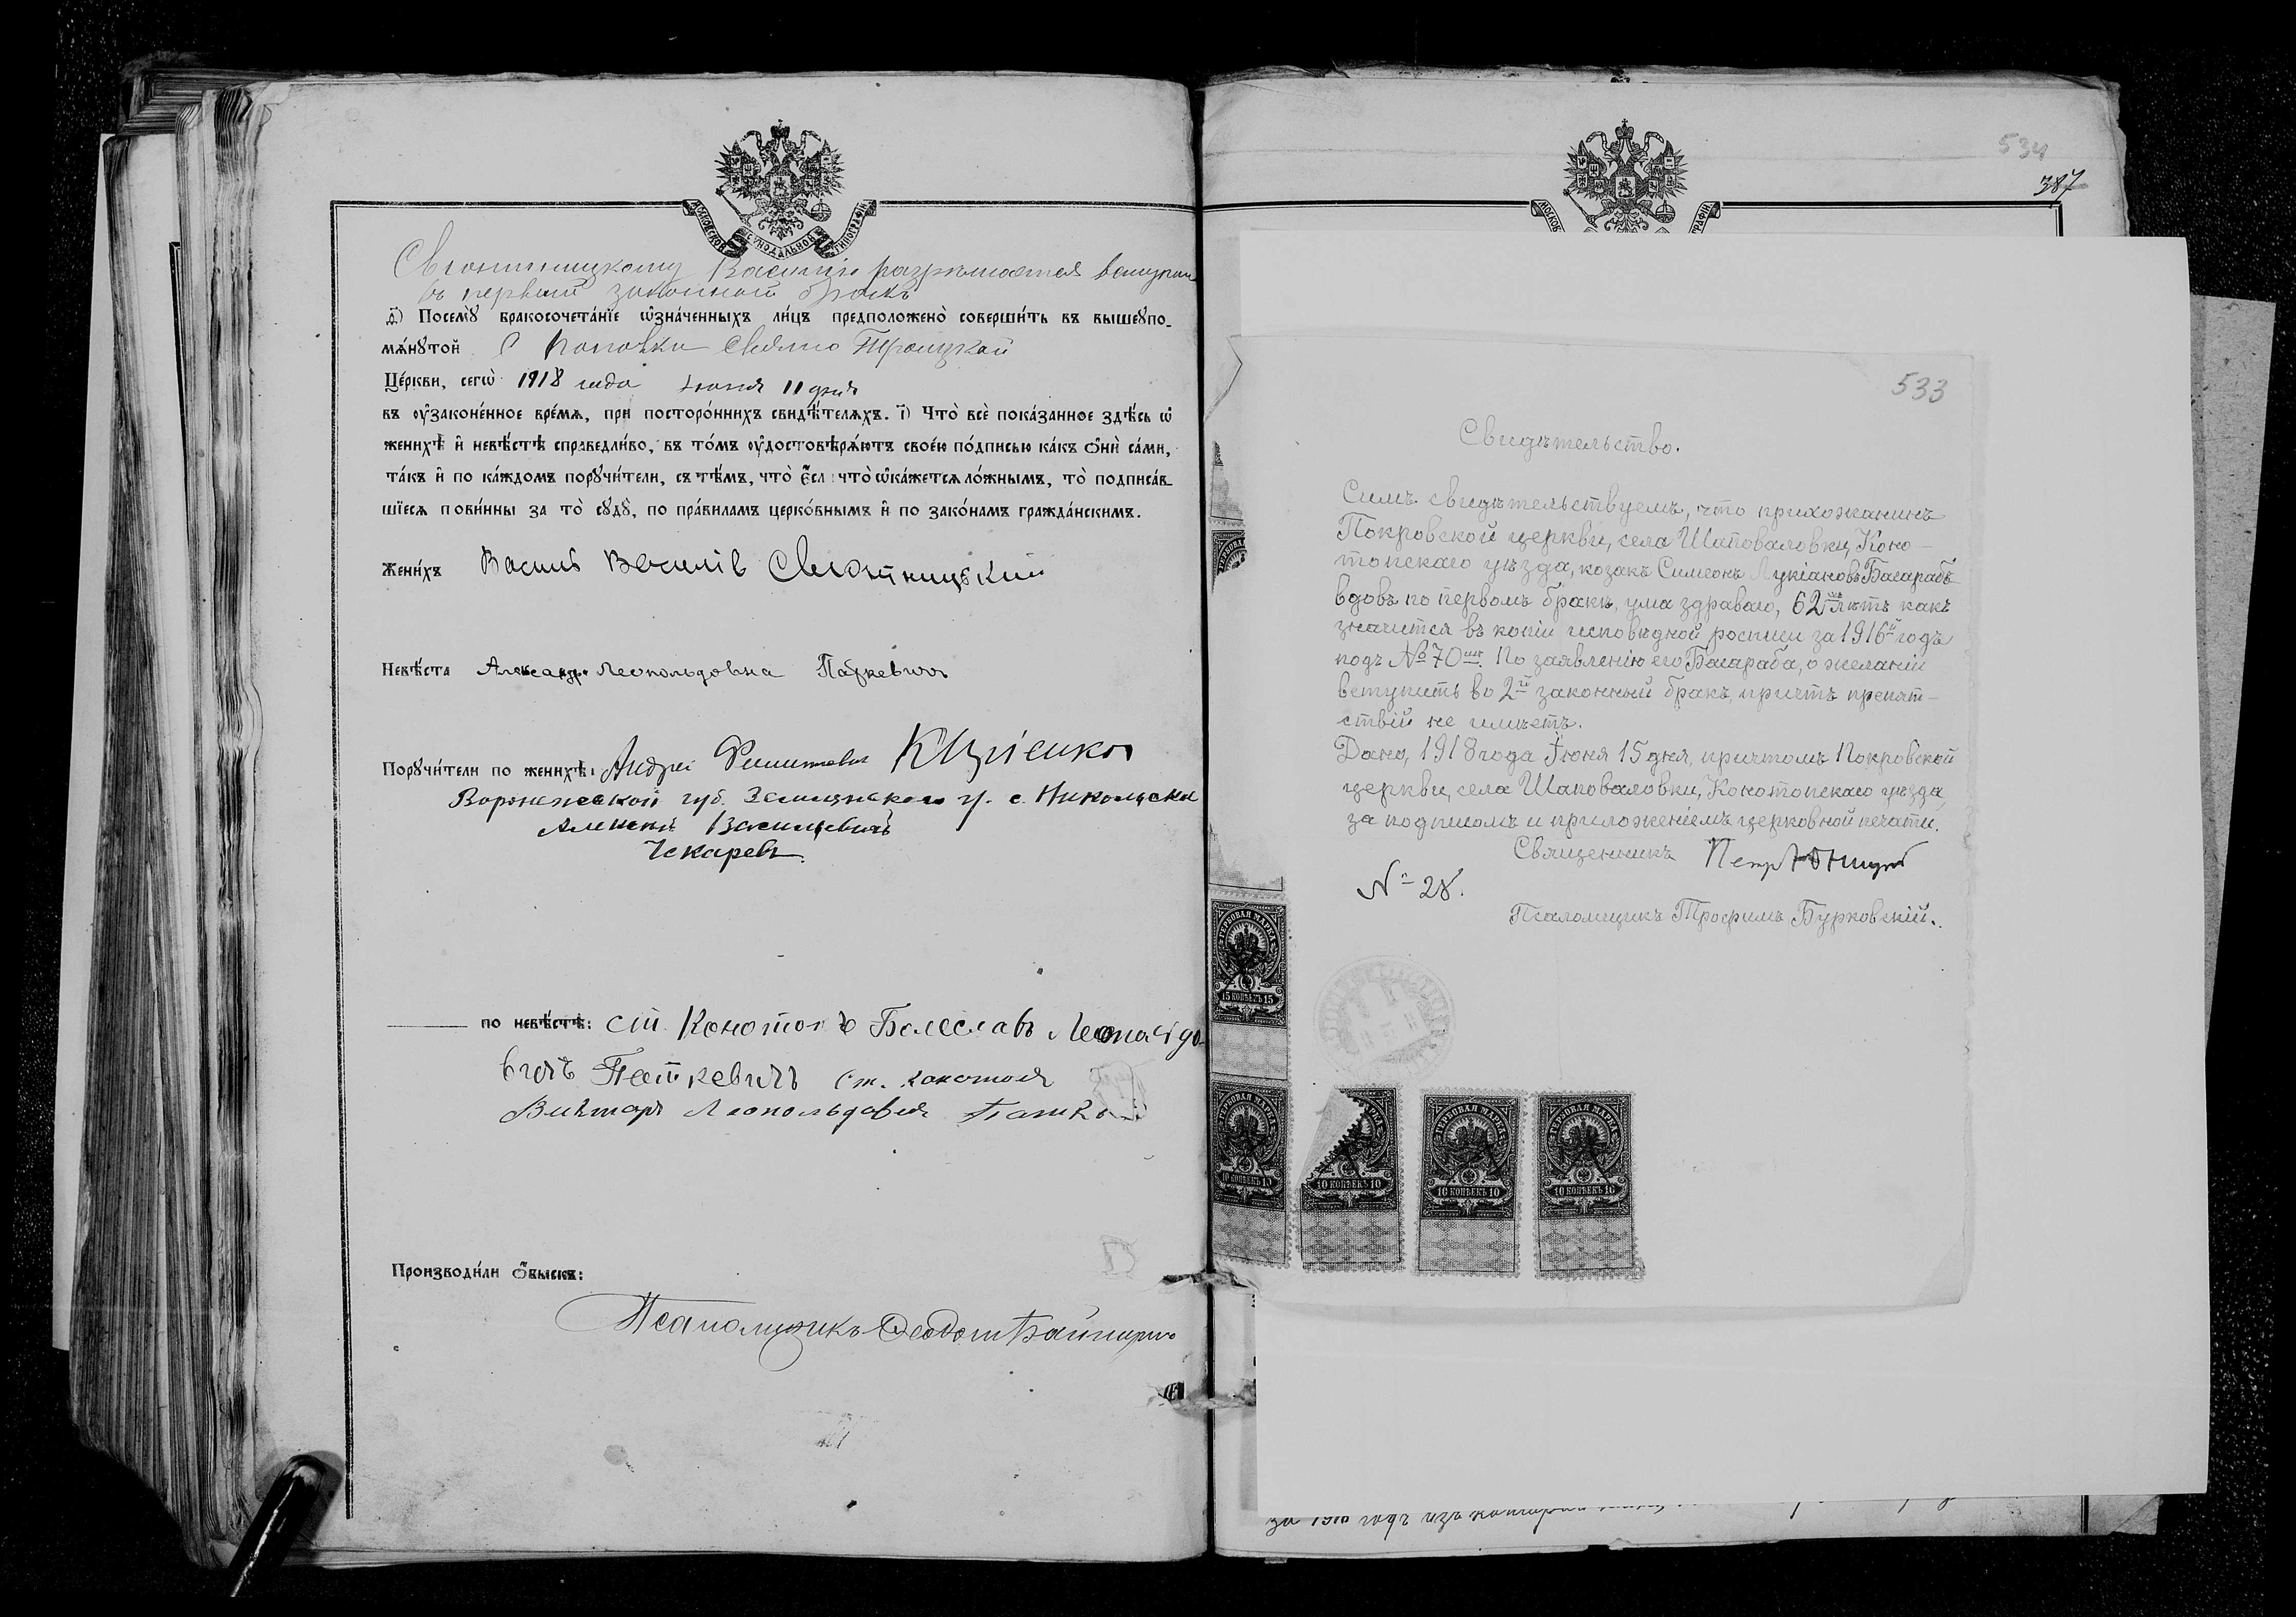 МОСКОВСКОЙ СѴНОДАЛЬНОЙ ТИПОГРАФІИ
Василію разрешается вступить
въ первый законный бракъ
д҃і) Посемꙋ̀ бракосочета́нїе ѡ҆зна́ченныхъ ли́цъ предположено̀ соверши́ть въ вышеꙋпо-
мѧ́нꙋтой С Поповки Свято Троицкой
Це́ркви, сегѡ̀ 1918 года Іюня 11 дня
въ ᲂу҆законе́нное вре́мѧ, при посторо́ннихъ свидѣ́телѧхъ. і҃) Что̀ всѐ пока́занное здѣ́сь ѡ҆
женихѣ̀ и҆ невѣ́стѣ справедли́во, въ то́мъ ᲂу҆достовѣрѧ́ютъ свое́ю по́дписью ка́къ ѻ҆нѝ са́ми,
та́къ и҆ по ка́ждомъ порꙋчи́тели, съ тѣ́мъ, что̀ є҆́сл что̀ ѡ҆ка́жется ло́жнымъ, то̀ подписа́в-
шїесѧ пови́нны за то̀ сꙋдꙋ̀, по пра́виламъ церко́внымъ и҆ по зако́намъ гражда́нскимъ.
Жени́хъ Василь Василів Свіонтицький
Невѣ́ста Александра Леопольдовна Паткевичъ
Порꙋчи́тели по женихѣ̀: Андрей Филиппович Куліенко
Воронежской губ. Землянскаго у. с. Никольска
Алексей Васильевичъ
Чекаревъ
по невѣ́стѣ: ст. Конотопъ Болеславъ Леопольдо-
вичъ Паткевичъ ст. Конотопа
Викторъ Леопольдович
Производи́ли ѻ҆́быскъ:
Псаломщикъ Феодотъ
534
387
533
Свидѣтельство.
Симъ свидѣтельствуемъ, что прихожанинъ
Покровской церкви, села Шаповаловки, Коно-
топскаго уѣзда, козакъ Симеонъ Лукіановъ Басарабъ
вдовъ по первомъ бракѣ, ума здраваго, 62хъ лѣтъ какъ
значится въ копіи исповѣдной росписи за 1916й годъ
подъ № 70мъ. По заявленію его Басараба, о желаніи
вступить во 2й законный бракъ, причтъ препят-
ствій не имѣетъ.
Дано, 1918 года Іюня 15 дня, причтомъ Покровской
церкви, села Шаповаловки, Конотопскаго уѣзда,
за подписомъ и приложеніемъ церковной печати.
Священникъ Петръ
№ 28.
Псаломщикъ Трофимъ Бурковскій.
ГЕРБОВАЯ МАРКА
15 КОПѢЕКЪ 15
ГЕРБОВАЯ МАРКА
10 КОПѢЕКЪ 10
10 КОПѢЕКЪ 10
ГЕРБОВАЯ МАРКА
10 КОПѢЕКЪ 10
ГЕРБОВАЯ МАРКА
10 КОПѢЕКЪ 10
за 1916 годъ изъ